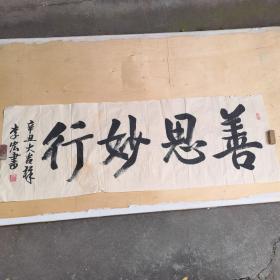 善思妙行
辛丑大吉祥
李宏書